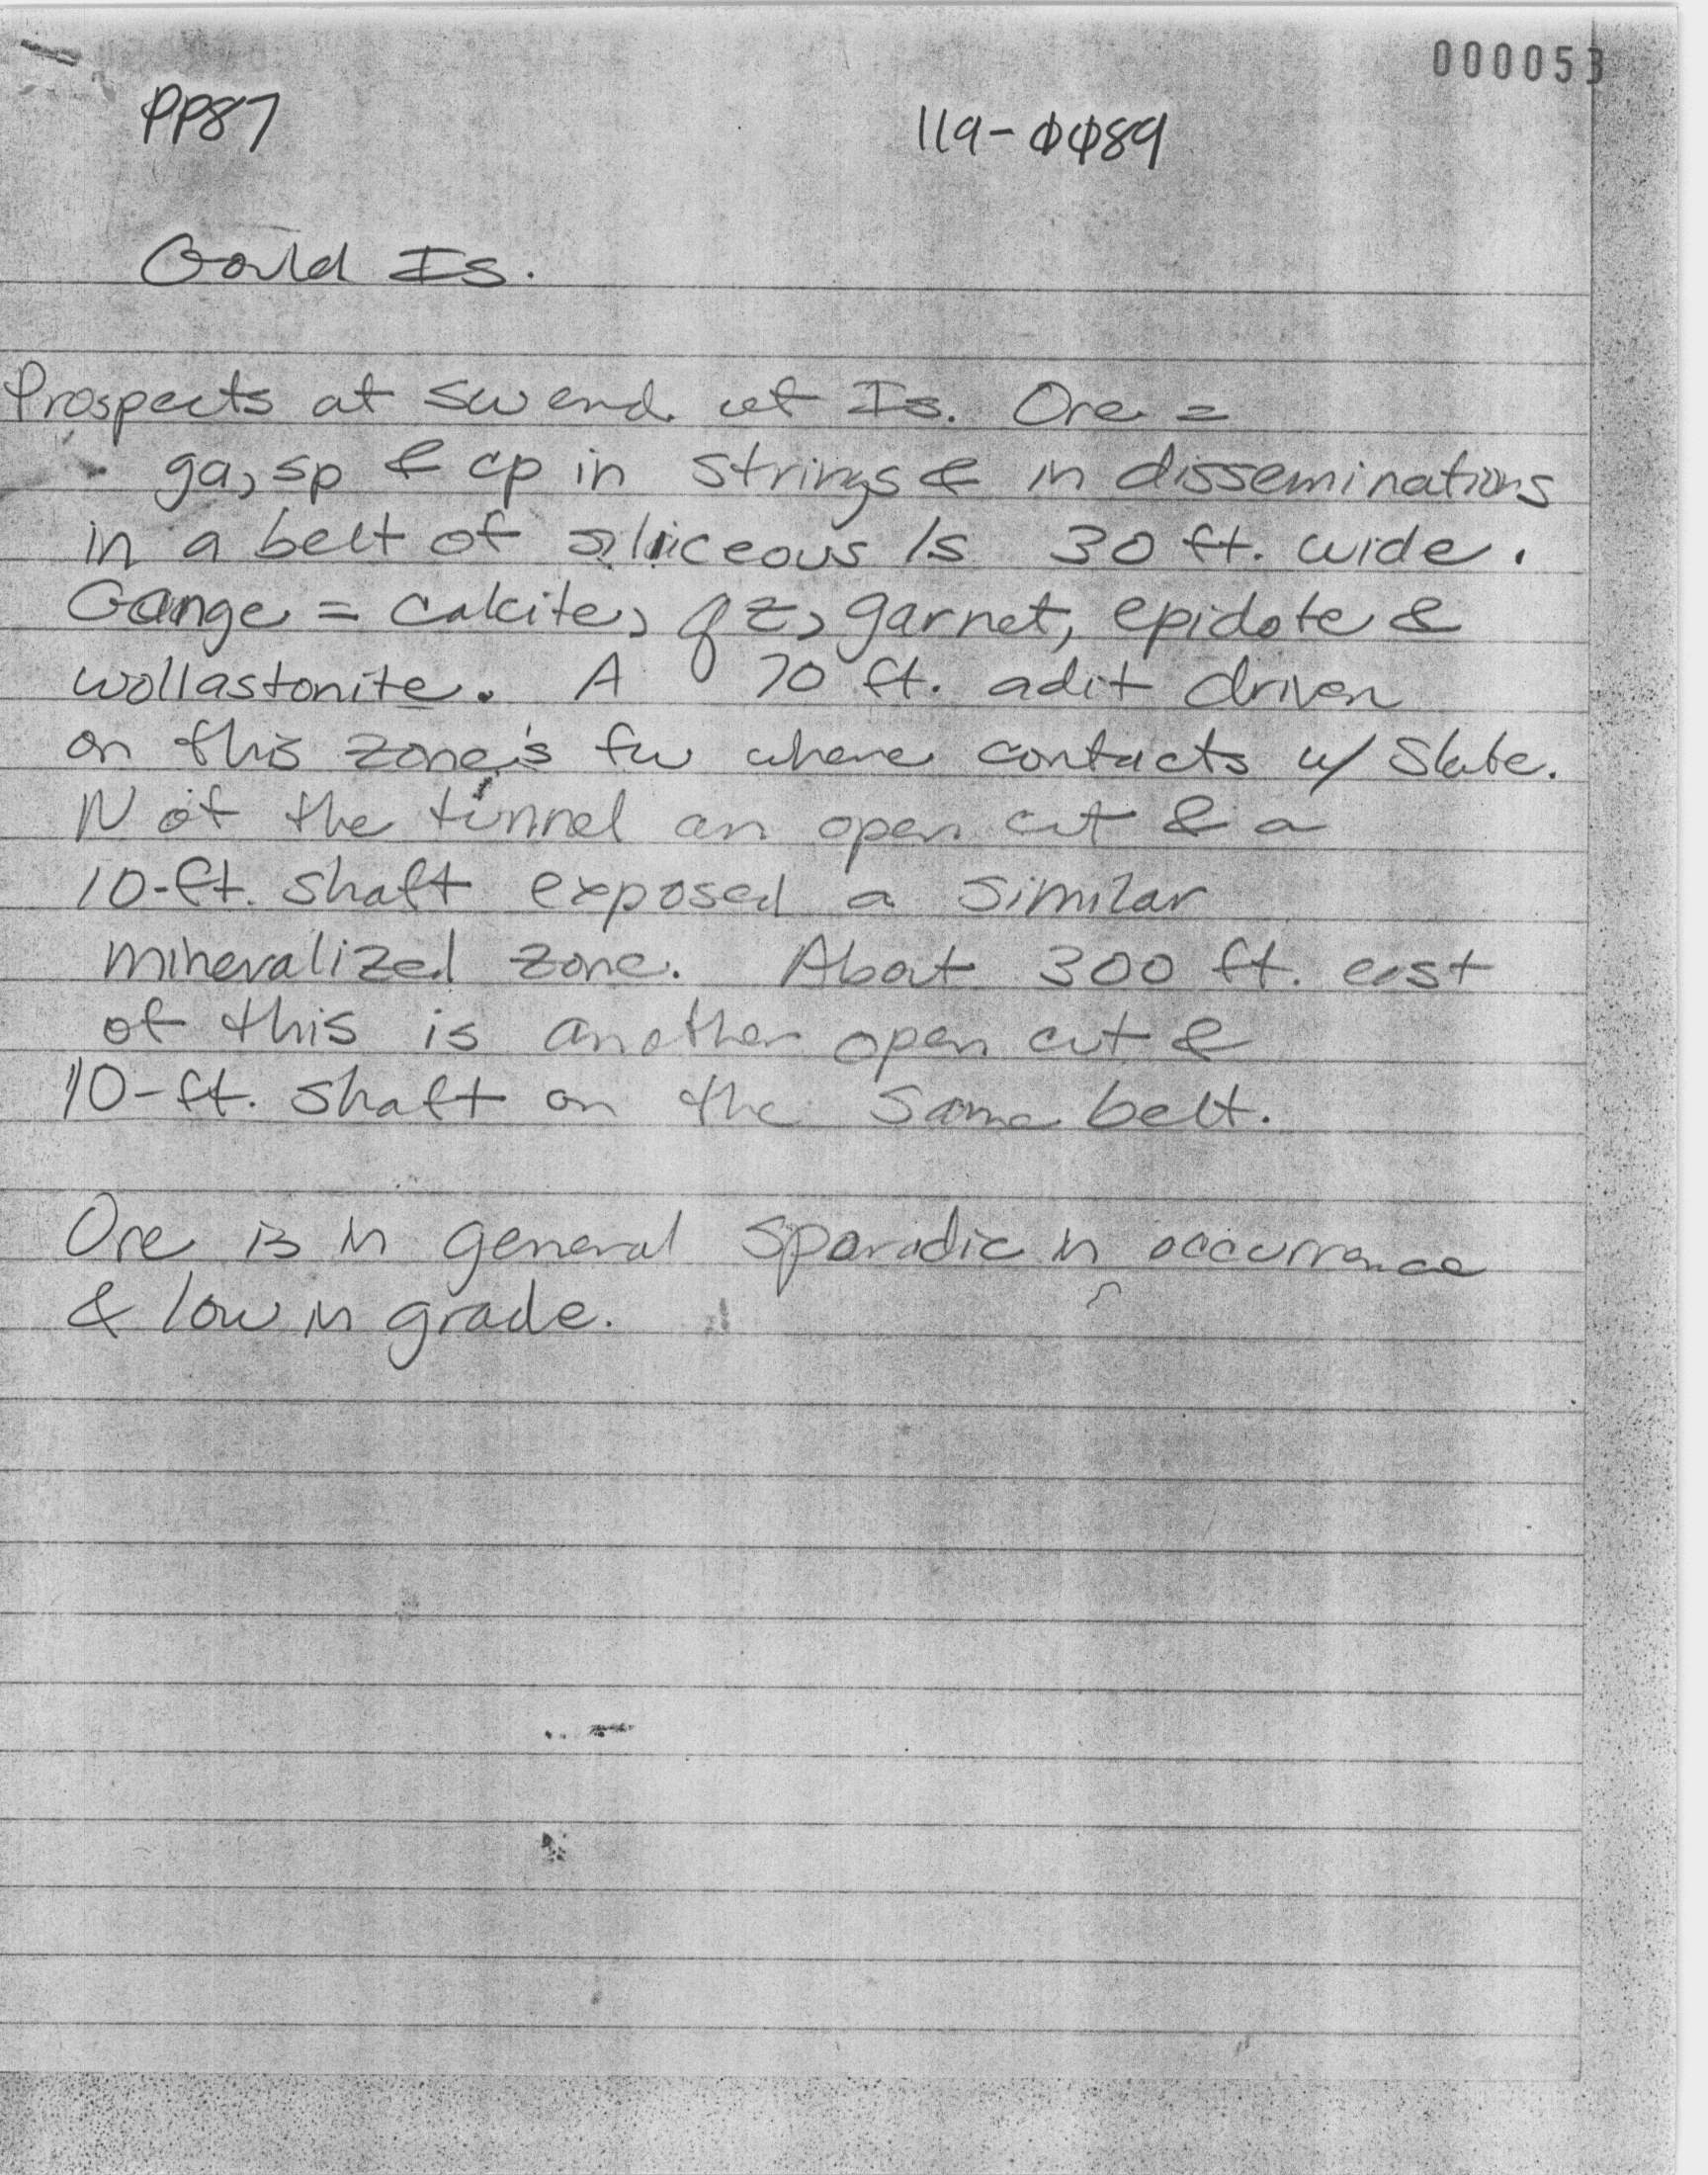 000053
PP87 119-0089
Gould Is.
Prospects at SW end of Is. Ore =
ga, sp & cp in strings & in disseminations
in a belt of siliceous ls 30 ft. wide.
Gange = calcite, qz, garnet, epidote &
wollastonite. A 70 ft. adit driven
on this zone's fw where contacts w/ slate.
N of the tunnel an open cut & a
10-ft. shaft exposed a similar
mineralized zone. About 300 ft. east
of this is another open cut &
10-ft. shaft on the same belt.
Ore is in general sporadic in occurrence
& low in grade.